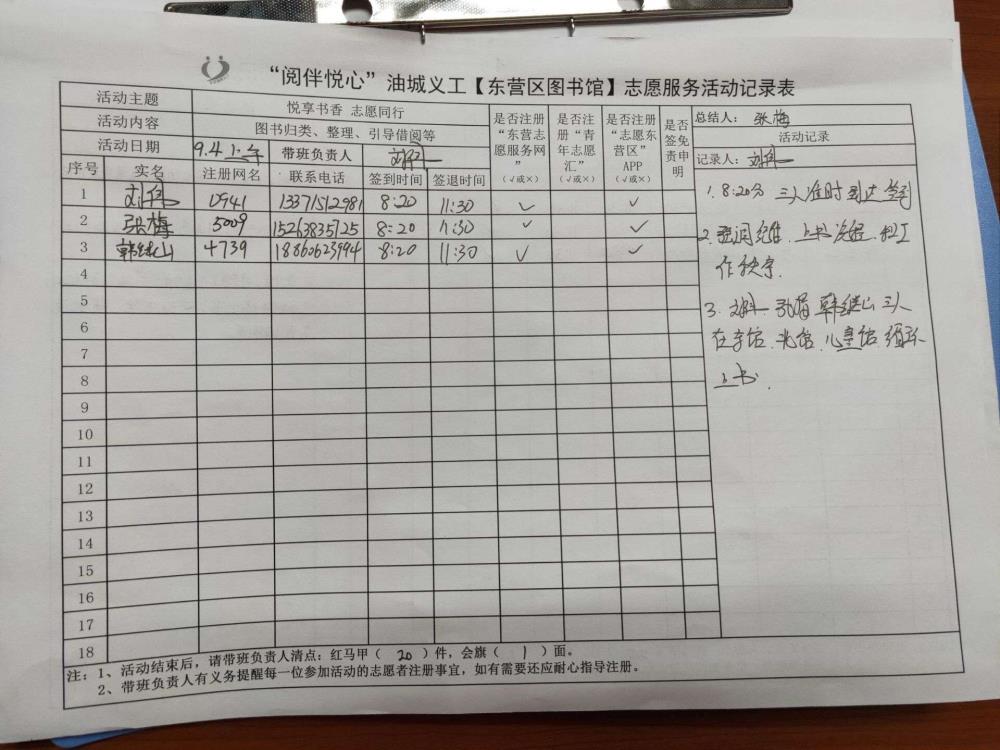 “阅伴悦心”油城义工【东营区图书馆】志愿服务活动记录表
活动主题 悦享书香 志愿同行
活动内容 图书归类、整理、引导借阅等
活动日期 9.4 上午 带班负责人
是否注册“东营志愿服务网” (√或×)
是否注册“青年志愿汇” (√或×)
是否注册“志愿东营区”APP (√或×)
是否签免责申明
总结人: 张梅
活动记录
记录人:
序号 实名 注册网名 联系电话 签到时间 签退时间
1 刘伟 0941 13371512981 8:20 11:30 √ √
2 张梅 5009 15263835725 8:20 11:30 √ √
3 韩继山 4739 18860623994 8:20 11:30 √ √
4
5
6
7
8
9
10
11
12
13
14
15
16
17
18
1. 8:20分 三人准时到达签到
2. 上书
作秩序.
3. 韩继山 三人
儿童馆
上书.
注: 1、活动结束后，请带班负责人清点: 红马甲（ 20 ）件，会旗（ 1 ）面。
2、带班负责人有义务提醒每一位参加活动的志愿者注册事宜，如有需要还应耐心指导注册。